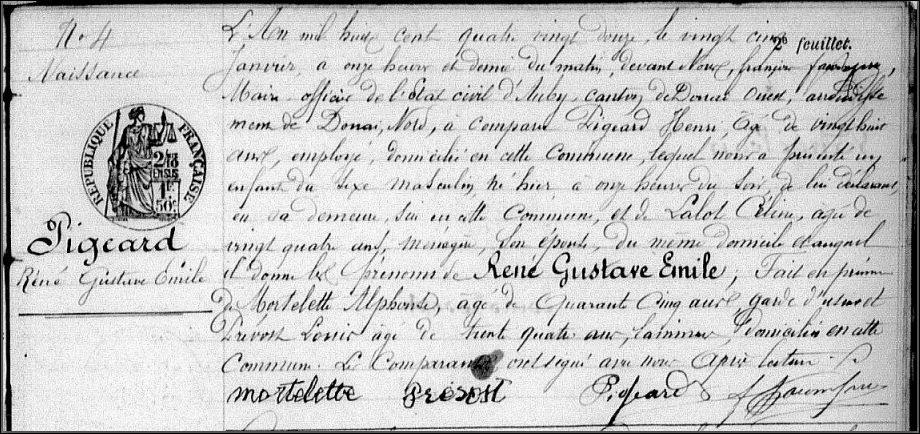 2e feuillet.
No 4
Naissance
RÉPUBLIQUE FRANÇAISE
2/10
EN SUS
1F
50c
Pigeard
Réné Gustave Emile
L'An mil huit cent quatre vingt douze, le vingt cinq
Janvier, à onze heures et demie du matin, devant Nous, françois
Maire officier de l'Etat civil d'Auby, canton de Douai Ouest, arrondisse
ment de Douai, Nord, à comparu Pigeard Henri, âgé de vingt huit
ans, employé, domicilié en cette Commune, lequel nous a présenté un
enfant du sexe masculin, né hier à onze heures du soir, de lui déclarant
en sa demeure, sise en cette Commune, et de Lalot Céline, agée de
vingt quatre ans, ménagère, Son épouse, du même domicile et auquel
il donne les prénoms de René Gustave Emile, Fait en présence
de Mortelette Alphonse, agé de Quarante Cinq ans, garde d'usine et
Prevost Louis agé de trente quatre ans, domiciliés en cette
Commune. Les Comparants ont signé avec nous Après lecture.
mortelette PREVOST Pigeard